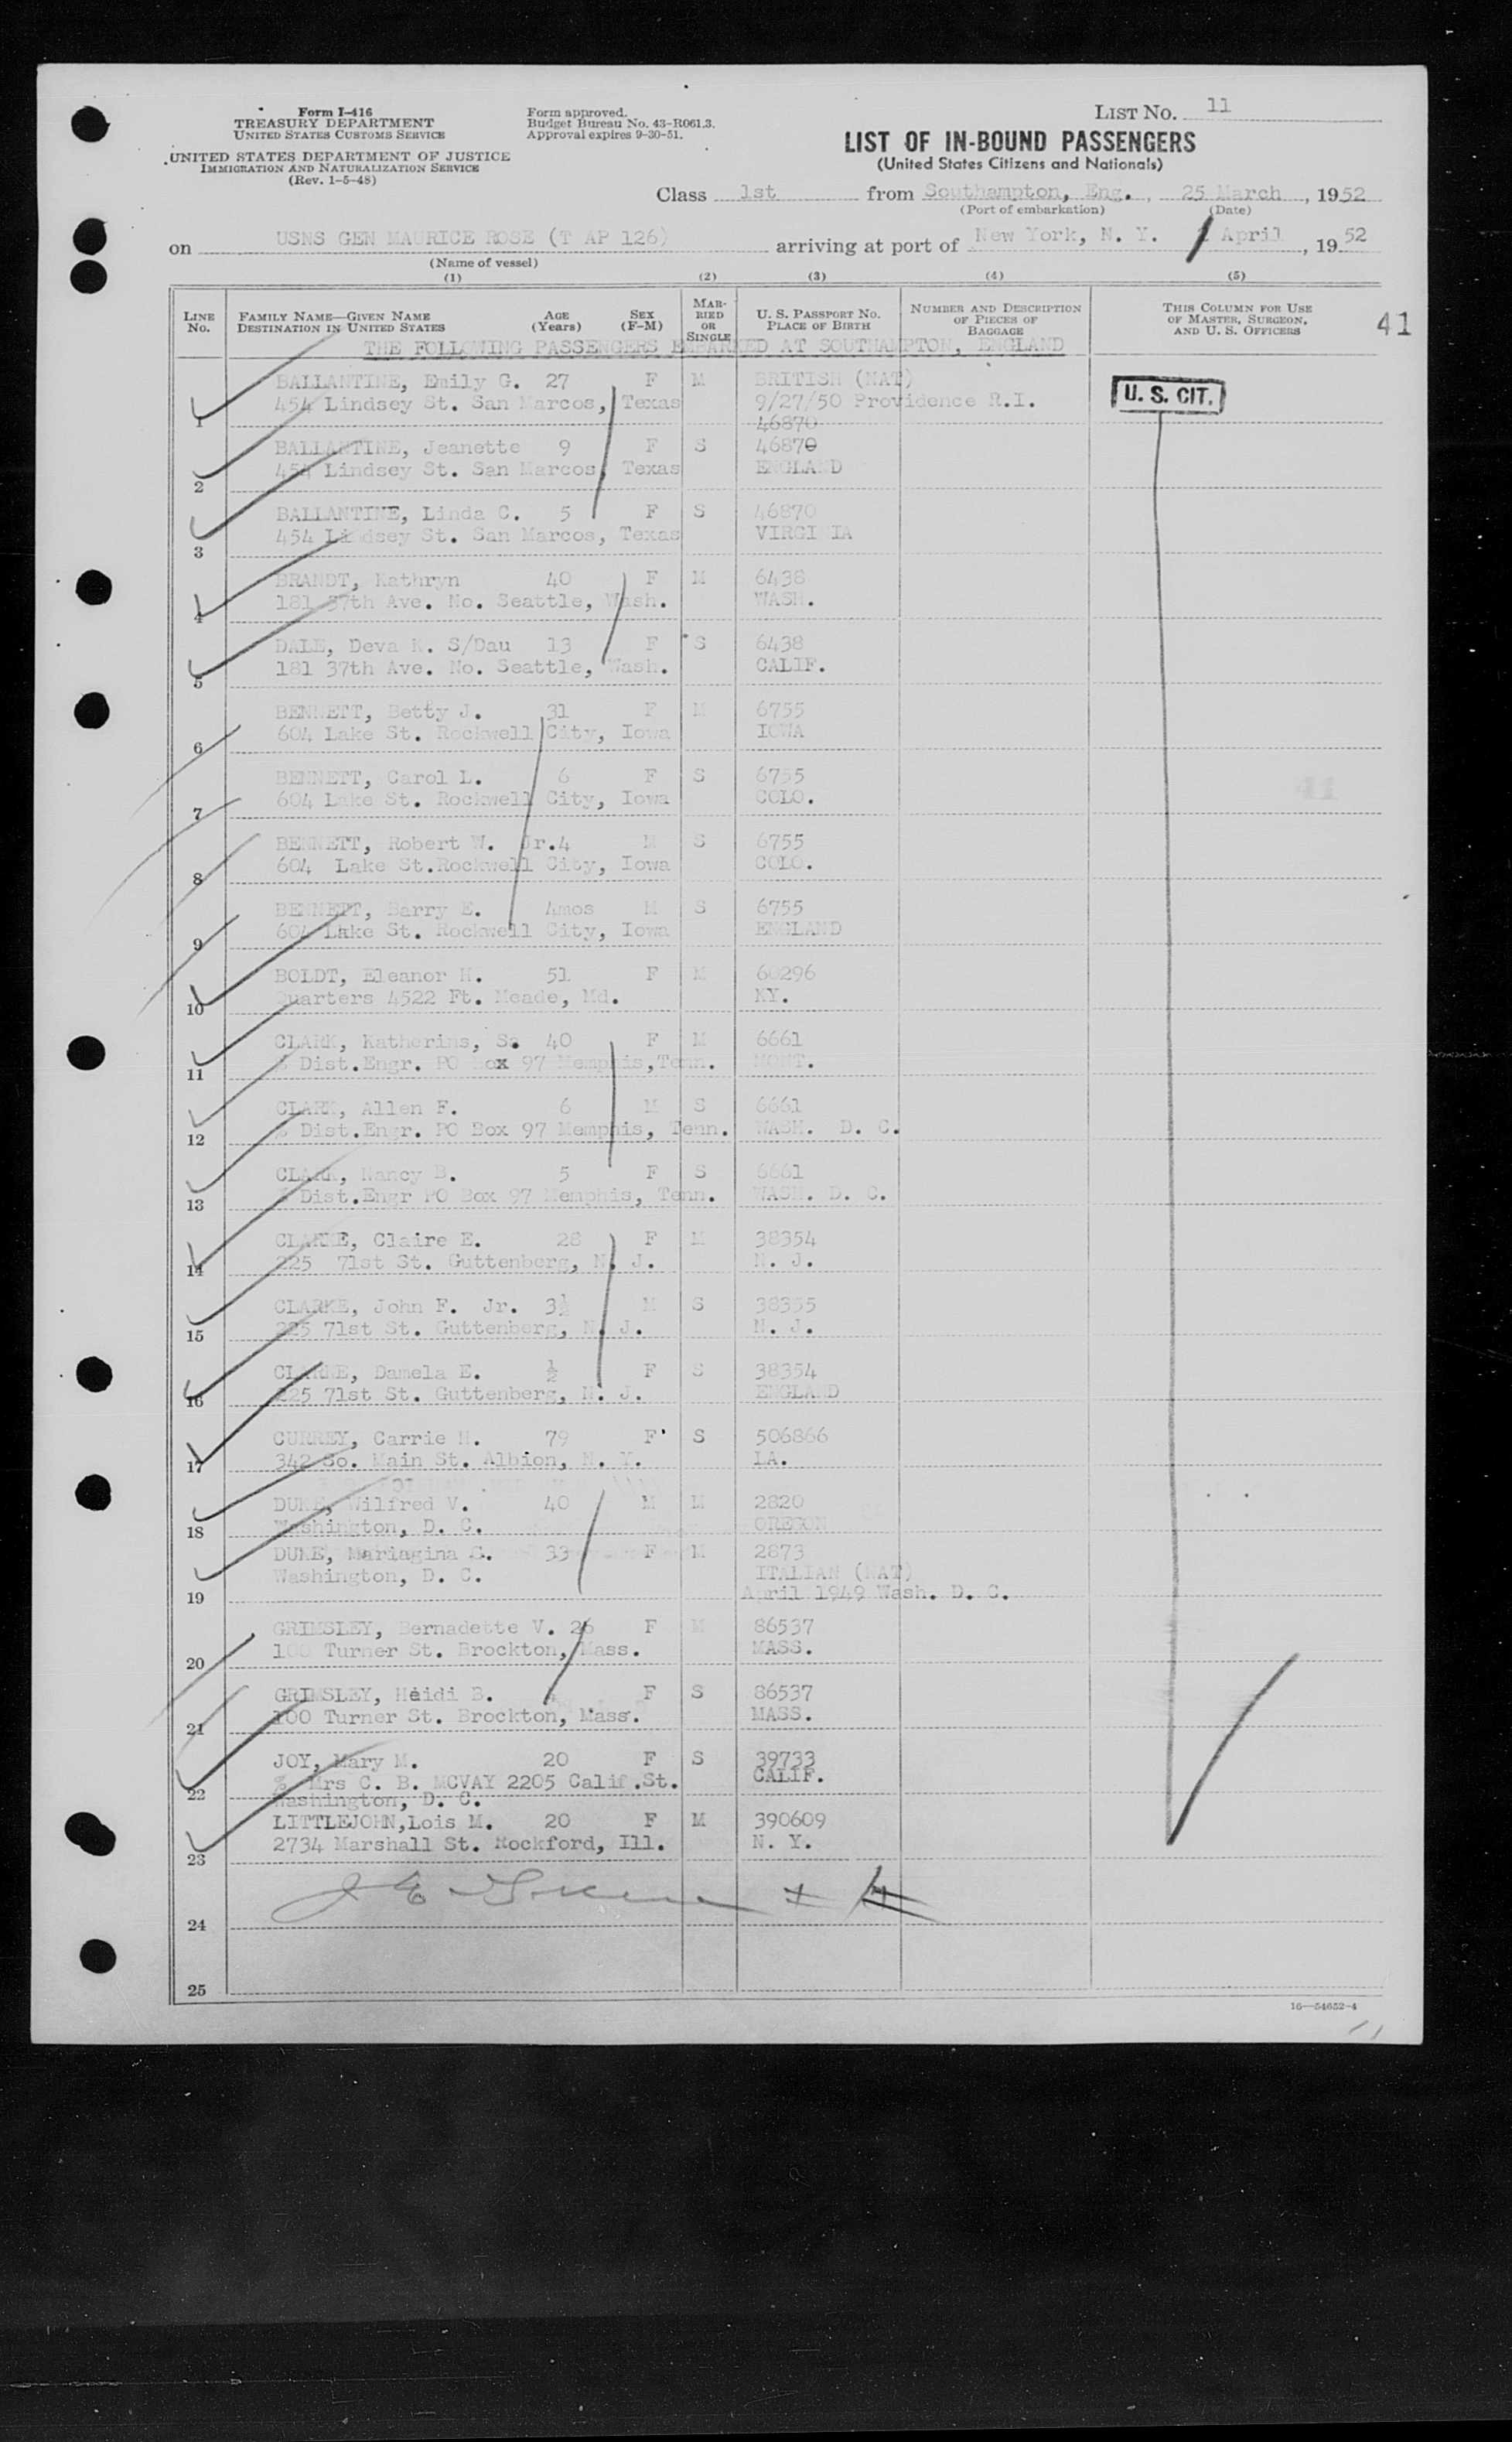 Form I-416
TREASURY DEPARTMENT
UNITED STATES CUSTOMS SERVICE
UNITED STATES DEPARTMENT OF JUSTICE
IMMIGRATION AND NATURALIZATION SERVICE
(Rev. 1-5-48)
Form approved.
Budget Bureau No. 43-R061.3.
Approval expires 9-30-51.
LIST NO. 11
LIST OF IN-BOUND PASSENGERS
(United States Citizens and Nationals)
Class 1st from Southampton, Eng., 25 March, 1952
(Port of embarkation) (Date)
on USNS GEN MAURICE ROSE (T AP 126) arriving at port of New York, N. Y. April, 1952
(Name of vessel)
(1) (2) (3) (4) (5)
LINE NO.
FAMILY NAME—GIVEN NAME
DESTINATION IN UNITED STATES
AGE (Years)
SEX (F-M)
MARRIED OR SINGLE
U. S. PASSPORT NO.
PLACE OF BIRTH
NUMBER AND DESCRIPTION OF PIECES OF BAGGAGE
THIS COLUMN FOR USE OF MASTER, SURGEON, AND U. S. OFFICERS
41
THE FOLLOWING PASSENGERS EMBARKED AT SOUTHAMPTON, ENGLAND
BALLANTINE, Emily G. 27 F M BRITISH (NAT)
454 Lindsey St. San Marcos, Texas 9/27/50 Providence R.I.
1 46870
U. S. CIT.
BALLANTINE, Jeanette 9 F S 46870
454 Lindsey St. San Marcos, Texas ENGLAND
2
BALLANTINE, Linda C. 5 F S 46870
454 Lindsey St. San Marcos, Texas VIRGINIA
3
BRANDT, Kathryn 40 F M 6438
181 37th Ave. No. Seattle, Wash. WASH.
4
DALE, Deva K. S/Dau 13 F S 6438
181 37th Ave. No. Seattle, Wash. CALIF.
5
BENNETT, Betty J. 31 F M 6755
604 Lake St. Rockwell City, Iowa IOWA
6
BENNETT, Carol L. 6 F S 6755
604 Lake St. Rockwell City, Iowa COLO.
7
BENNETT, Robert W. Jr. 4 M S 6755
604 Lake St. Rockwell City, Iowa COLO.
8
BENNETT, Barry E. 4mos M S 6755
604 Lake St. Rockwell City, Iowa ENGLAND
9
BOLDT, Eleanor H. 51 F M 60296
Quarters 4522 Ft. Meade, Md. KY.
10
CLARK, Katherins, S. 40 F M 6661
% Dist.Engr. PO Box 97 Memphis,Tenn. MONT.
11
CLARK, Allen F. 6 M S 6661
% Dist.Engr. PO Box 97 Memphis, Tenn. WASH. D. C.
12
CLARK, Nancy B. 5 F S 6661
% Dist.Engr PO Box 97 Memphis, Tenn. WASH. D. C.
13
CLARKE, Claire E. 28 F M 38354
225 71st St. Guttenberg, N. J. N. J.
14
CLARKE, John F. Jr. 3½ M S 38355
225 71st St. Guttenberg, N. J. N. J.
15
CLARKE, Damela E. ½ F S 38354
225 71st St. Guttenberg, N. J. ENGLAND
16
CURREY, Carrie H. 79 F S 506866
342 So. Main St. Albion, N. Y. LA.
17
DUKE, Wilfred V. 40 M M 2820
Washington, D. C. OREGON
18
DUKE, Mariagina G. 33 F M 2873
Washington, D. C. ITALIAN (NAT)
19 April 1949 Wash. D. C.
GRIMSLEY, Bernadette V. 26 F M 86537
100 Turner St. Brockton, Mass. MASS.
20
GRIMSLEY, Heidi B. F S 86537
100 Turner St. Brockton, Mass. MASS.
21
JOY, Mary M. 20 F S 39733
% Mrs C. B. MCVAY 2205 Calif.St. CALIF.
22 Washington, D. C.
LITTLEJOHN,Lois M. 20 F M 390609
2734 Marshall St. Rockford, Ill. N. Y.
23
24
25
16—54652-4
11